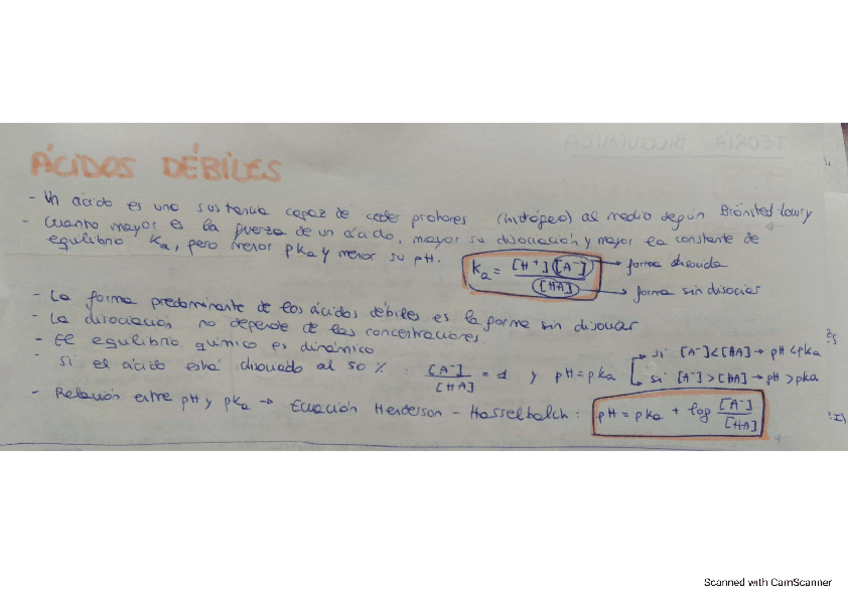 ÁCIDOS DÉBILES
- Un ácido es una sustancia capaz de ceder protones (hidrógeno) al medio según Brönsted-Lowry
- Cuanto mayor es la fuerza de un ácido, mayor su disociación y mayor la constante de
equilibrio Ka, pero menor pKa y menor su pH.
Ka = [H+][A-] / [HA] → forma disociada
→ forma sin disociar
- La forma predominante de los ácidos débiles es la forma sin disociar
- La disociación no depende de las concentraciones
- El equilibrio químico es dinámico
- Si el ácido está disociado al 50% : [A-] / [HA] = 1 y pH = pKa
si [A-] < [HA] → pH < pKa
si [A-] > [HA] → pH > pKa
- Relación entre pH y pKa → Ecuación Henderson - Hasselbalch : pH = pKa + log [A-] / [HA]
TEORÍA BIOQUÍMICA
Scanned with CamScanner